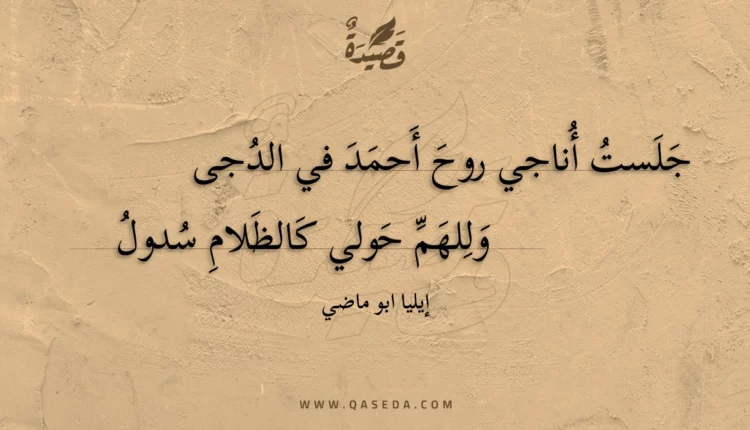 قَصِيْدَةٌ
جَلَستُ أُناجي روحَ أَحمَدَ في الدُجى
وَلِلهَمِّ حَولي كَالظَلامِ سُدولُ
إيليا ابو ماضي
WWW.QASEDA.COM